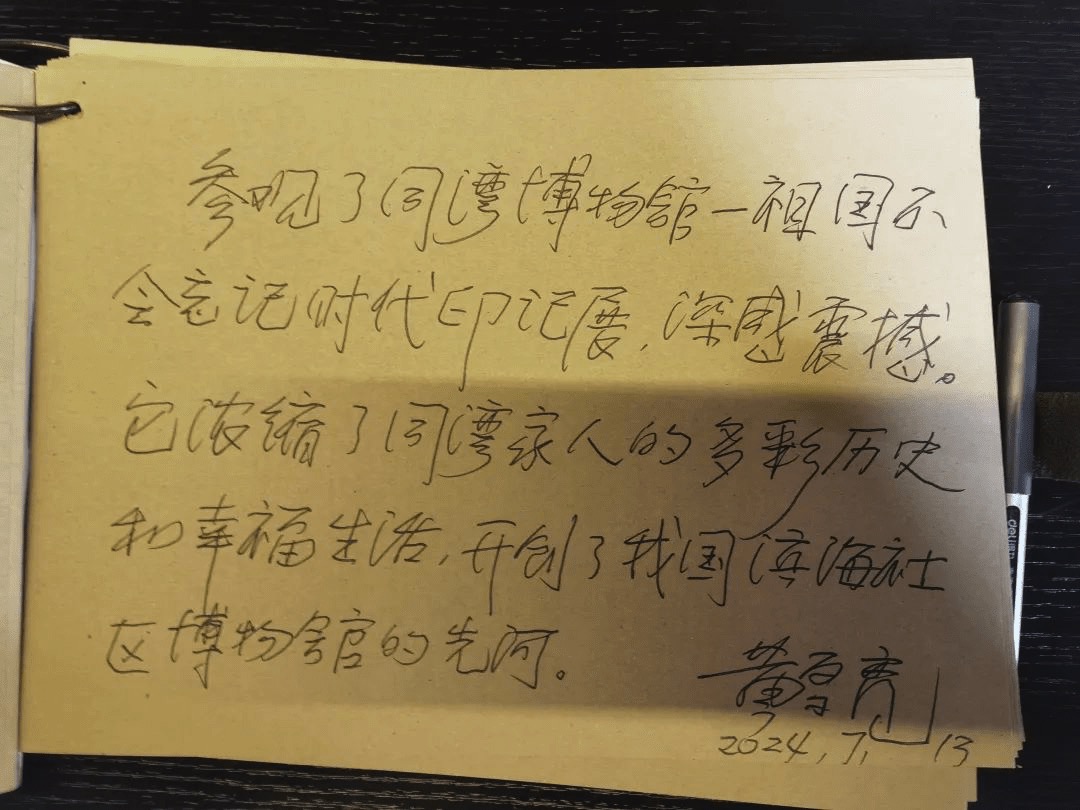 参观了同湾博物馆一祖国不
会忘记时代印记展,深感震撼。
它浓缩了同湾家人的多彩历史
和幸福生活,开创了我国滨海社
区博物馆的先河。
黄 亮
2024,7,13
deli